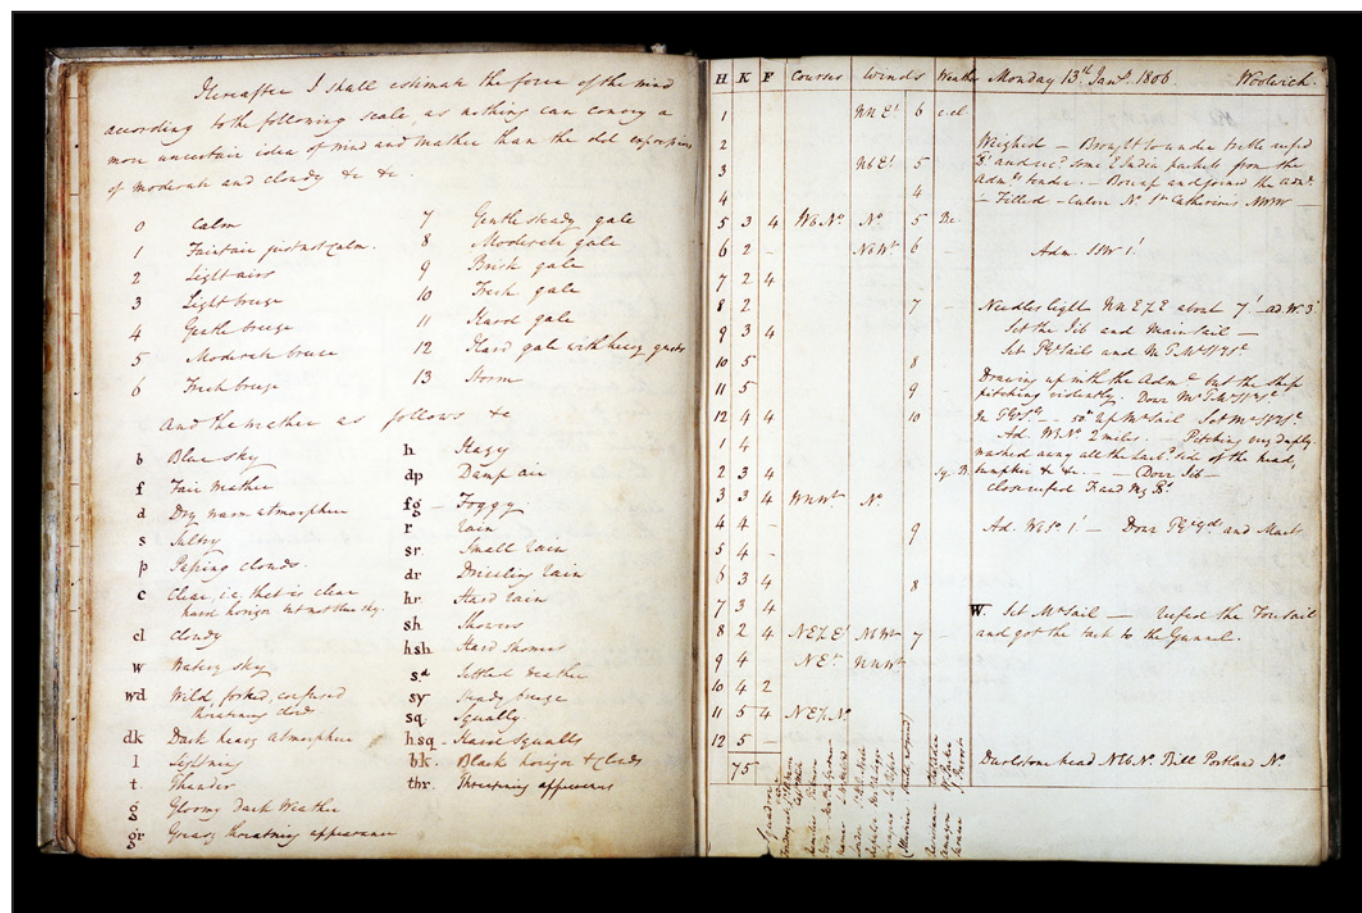 Hereafter I shall estimate the force of the wind
according to the following scale, as nothing can convey a
more uncertain idea of wind and weather than the old expressions
of moderate and cloudy &c &c.
0 Calm
1 Faint air just not calm.
2 Light airs
3 Light breeze
4 Gentle breeze
5 Moderate breeze
6 Fresh breeze
7 Gentle steady gale
8 Moderate gale
9 Brisk gale
10 Fresh gale
11 Hard gale
12 Hard gale with heavy gusts
13 Storm
And the weather as follows &c
b Blue sky
f Fair weather
d Dry warm atmosphere
s Sultry
p Passing clouds.
c Clear, i.e. that is clear
hard horizon but not blue sky.
cl cloudy
w Watery sky
wd Wild, forked, confused
threatening clouds
dk Dark heavy atmosphere
l Lightning
t Thunder
g Gloomy Dark Weather
gr Greasy threatning appearance
h Hazy
dp Damp air
fg Foggy
r rain
sr Small rain
dr Drizzling rain
hr Hard rain
sh Showers
hsh Hard Showers
sd Settled weather
sy Steady breeze
sq. Squally.
hsq Hard Squalls
bk. Black horizon & Clouds
thr. Threatning appearance
H K F Courses Winds Weather Monday 13th Jany. 1806. Woolwich.
1 NNEt 6 c.cl.
2
3 NbEt 5
4 4
5 3 4 WbNo No 5 Bc.
6 2 – NbWt 6 –
7 2 4
8 2 7 –
9 3 4
10 5 8
11 5 9
12 4 4 10
1 4
2 3 4 sq. B.
3 3 4 WNWt No
4 4 – 9
5 4 –
6 3 4 8
7 3 4
8 2 4 7 –
9 4 NEt NNWt
10 4 2
11 5 4
12 5 –
75
Weighed – Brought to under treble reefed
and recd some E India packets from the
Adm's tender. – Bore up and joined the Adm.
– Filled – St Catherines NNW –
Adm. SSW 1'
Needles light about 7'
Set the Jib and Main sail –
Drawing up with the Adml but the ship
pitching violently.
2 miles. – Pitching very deeply.
washed away all the larbd side of the head,
bumpkin &c &c. – – Down Jib –
close reefed
and Masts
W. Set Mnsail – reefed the Foresail
and got the tack to the Gunnel.
Durlstone head NEbNo Bill Portland No
Squadron